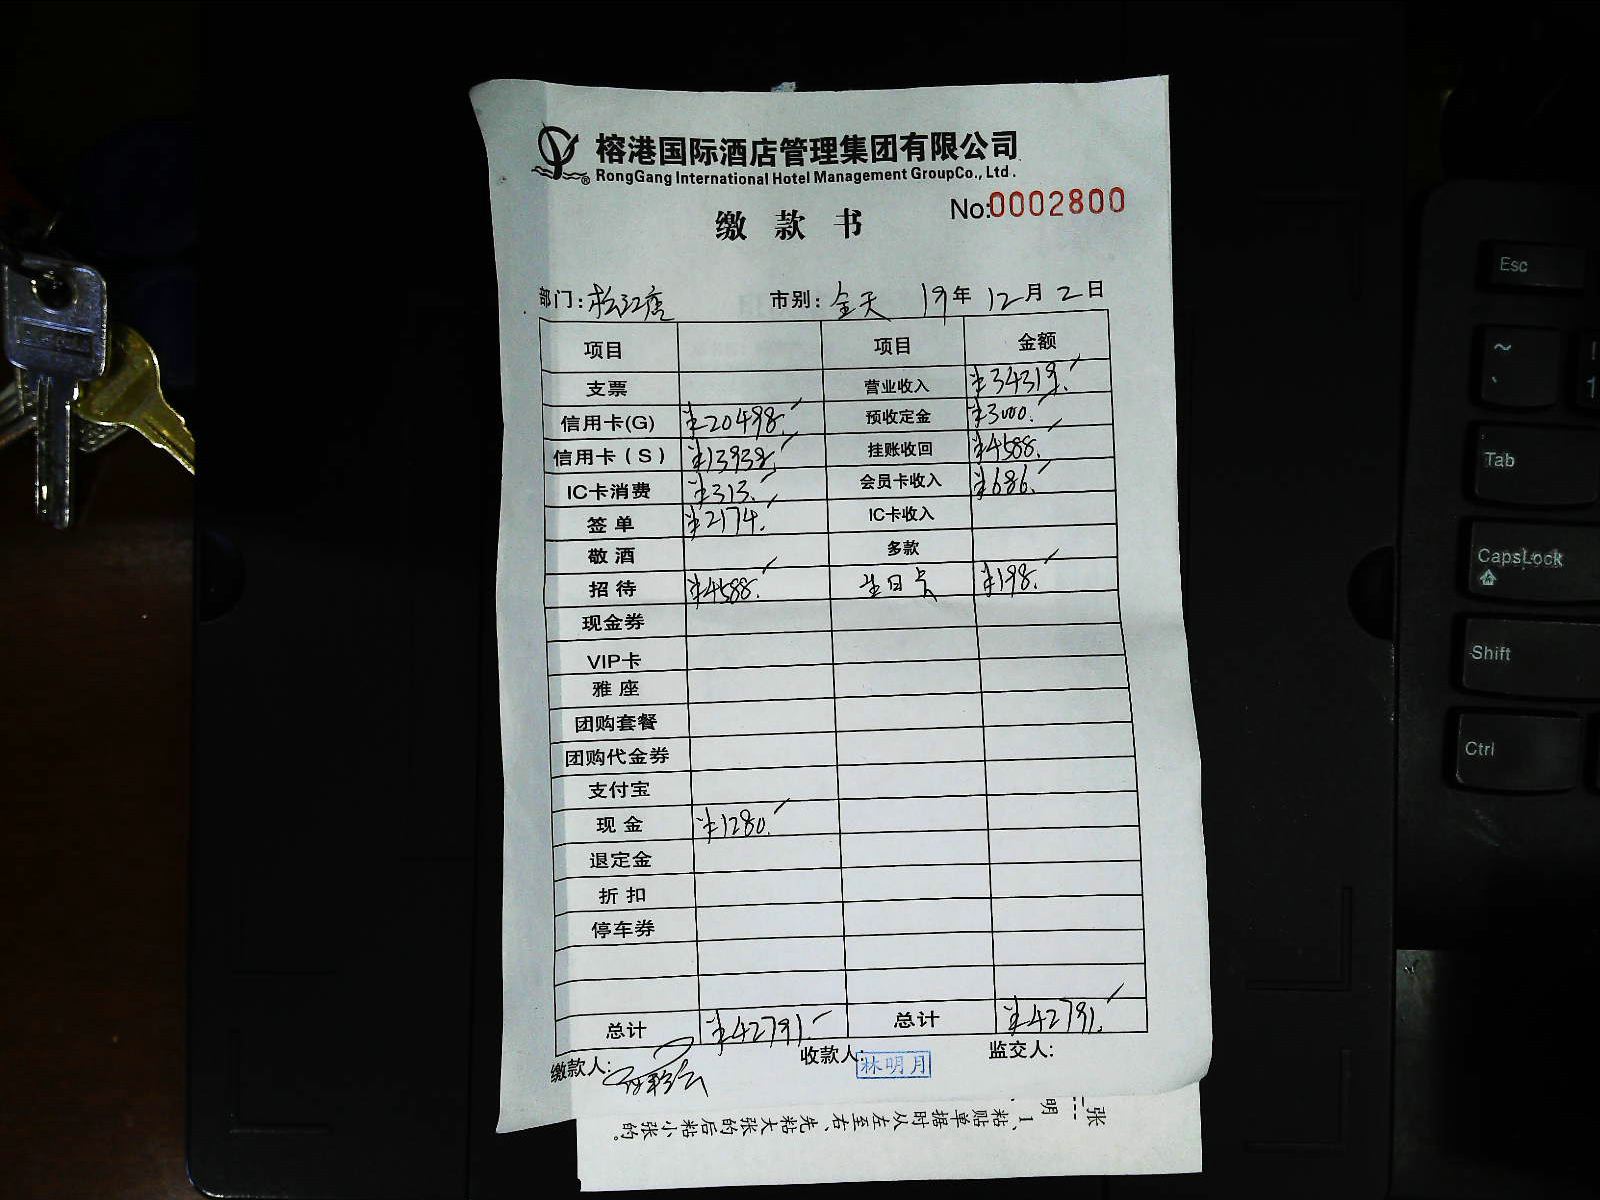 榕港国际酒店管理集团有限公司
RongGang International Hotel Management GroupCo., Ltd.
®
No:0002800
缴款书
部门:松江店 市别:全天 19年12月2日
项目 项目 金额
支票 营业收入 ¥34319.
信用卡(G) ¥20498. 预收定金 ¥3000.
信用卡(S) ¥13938. 挂账收回 ¥4588.
IC卡消费 ¥313. 会员卡收入 ¥686.
签单 ¥2174. IC卡收入
敬酒 多款
招待 ¥4588. 生日卡 ¥198.
现金券
VIP卡
雅座
团购套餐
团购代金券
支付宝
现金 ¥1280.
退定金
折扣
停车券
总计 ¥42791. 总计 ¥42791.
缴款人: 收款人: 林明月 监交人:
张
明
1、粘贴单据时从左至右、先粘大张的后粘小张的。
Esc
~
!
1
Tab
CapsLock
Shift
Ctrl